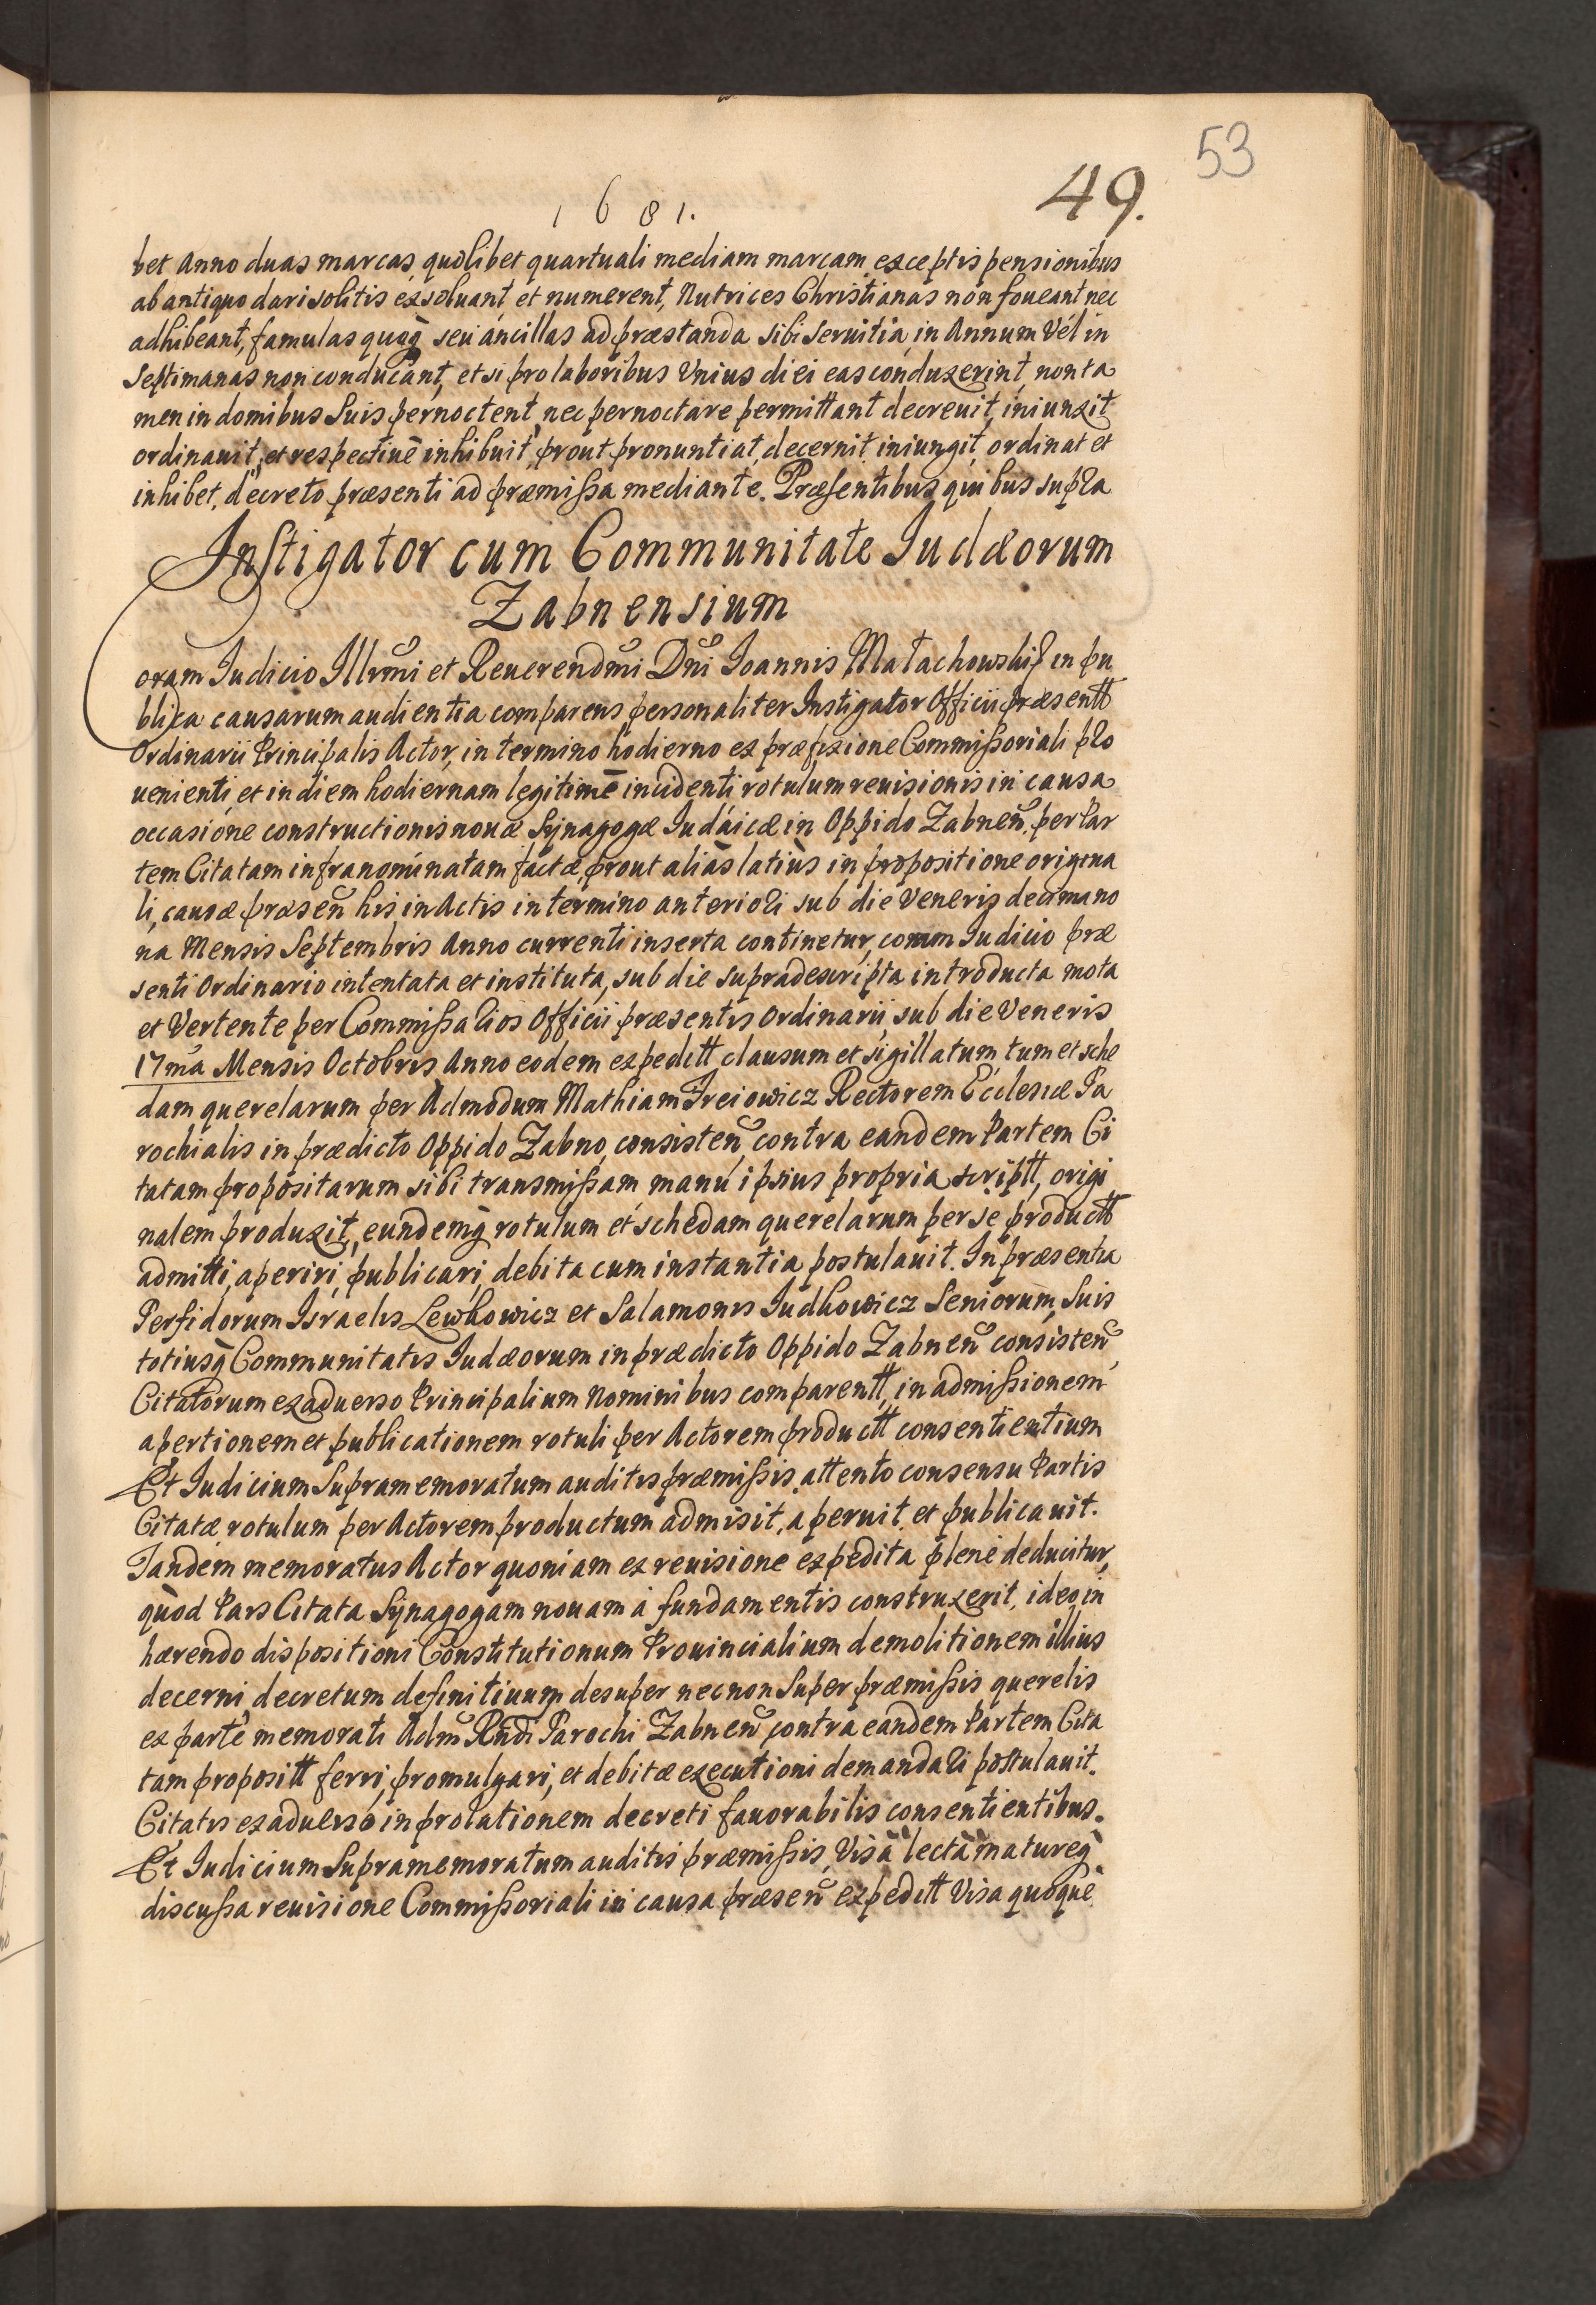 53
49.
1681.
bet Anno duas marcas, quolibet quartuali mediam marcam exceptis pensionibus
ab antiquo dari solitis exsoluant et numerent, Nutrices Christianas non foueant nec
adhibeant, famulas quoq̀ seu ancillas ad præstanda sibi seruitia, in Annum Vel in
Septimanas non conducant, et si pro laboribus Vnius diei eas conduxerint, non ta
men in domibus Suis pernoctent, nec pernoctare permittant decreuit, iniunxit
ordinauit, et respectiuè inhibuit, prout pronuntiat, decernit, iniungit, ordinat et
inhibet, decreto præsenti ad præmissa mediante. Præsentibus quibus supra
Instigator cum Communitate Iudæorum
Zabnensium
Coram Iudicio Illrmi et Reuerendmi Dni Ioannis Małachowski in pu
blica causarum audientia comparens personaliter Instigator Officii præsentt
Ordinarii Principalis Actor, in termino hodierno ex præfixione Commissoriali pro
uenienti, et in diem hodiernam legitimè incidenti rotulum reuisionis in causa
occasione constructionis nouæ Synagogæ Iudaicæ in Oppido Zabnen̄ per Par
tem Citatam infranominatam factæ, prout aliàs latiùs in propositione origina
li, causæ præsen̄ his in Actis in termino anteriori sub die Veneris decimano
na Mensis Septembris Anno currenti inserta continetur, coram Iudicio præ
senti Ordinario intentata et instituta, sub die supradescripta introducta mota
et Vertente per Commissarios Officii præsentis Ordinarii sub die Veneris
17ma Mensis Octobris Anno eodem expeditt clausum et sigillatum tum et sche
dam querelarum per Admodum Mathiam Freiowicz Rectorem Ecclesiæ Pa
rochialis in prædicto Oppido Zabno, consisten̄ contra eandem Partem Ci
tatam propositarum sibi transmissam, manu ipsius propria scriptt, origi
nalem produxit, eundemq̀ rotulum et schedam querelarum per se productt
admitti, aperiri, publicari, debita cum instantia postulauit. In præsentia
Perfidorum Israelis Lewkowicz et Salamonis Iudkowicz Seniorum, Suis
totiusq̀ Communitatis Iudæorum in prædicto Oppido Zabnen̄ consisten̄
Citatorum ex aduerso Principalium Nominibus comparentt, in admissionem
apertionem et publicationem rotuli per Actorem productt consentientium
Et Iudicium Supramemoratum auditis præmissis, attento consensu Partis
Citatæ rotulum per Actorem productum admisit, aperuit et publicauit.
Tandem memoratus Actor quoniam ex reuisione expedita plenè deducitur,
quòd Pars Citata Synagogam nouam à fundamentis construxerit, ideo in
hærendo dispositioni Constitutionum Prouincialium demolitionem illius
decerni, decretum definitiuum desuper nec non Super præmissis querelis
ex parte memorati Adm̄ Rndi Parochi Zabnen̄ contra eandem Partem Cita
tam propositt ferri, promulgari, et debitæ executioni demandari postulauit.
Citatis ex aduerso in prolationem decreti fauorabilis consentientibus.
Et Iudicium Supramemoratum auditis præmissis, Visà lectà matureq̀
discussa reuisione Commissoriali in causa præsen̄ expeditt Visa quoque